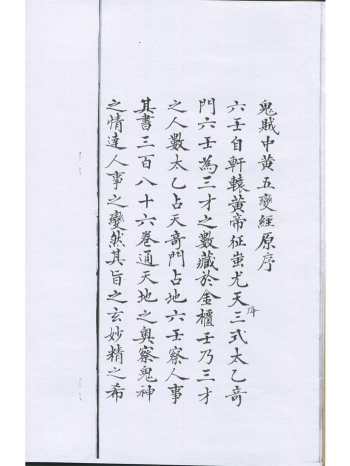 鬼賊中黄五變經原序
六壬自軒轅黄帝征蚩尤天降三式太乙竒
門六壬為三才之數藏於金櫃壬乃三才
之人數太乙占天竒門占地六壬察人事
其書三百八十六卷通天地之奥察鬼神
之情達人事之變然其旨之玄妙精之希